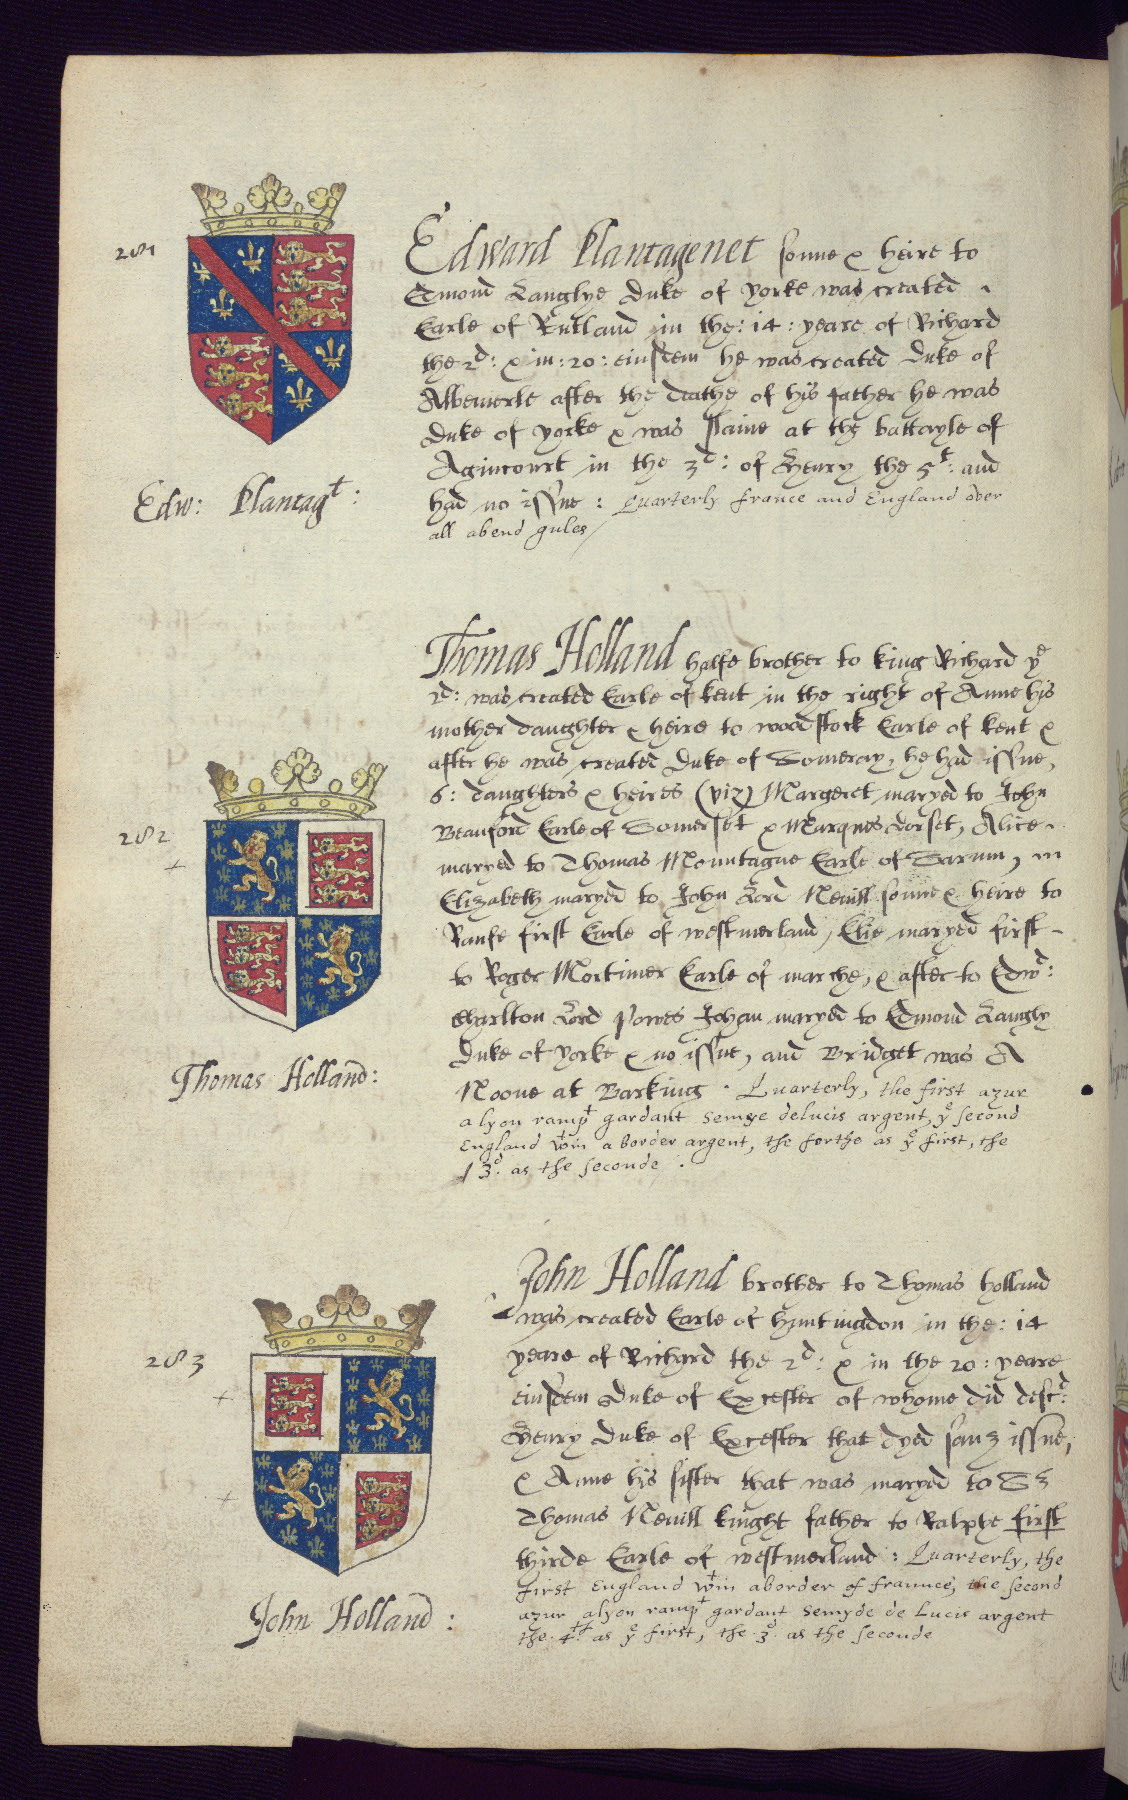 281
Edward Plantagenet sonne & heire to
Edmond Langlye Duke of yorke was created
Earle of Rutland in the: 14: yeare of Richard
the 2d: & in: 20: eiusdem he was created Duke of
Albemerle after the deathe of his father he was
Duke of yorke & was slaine at the battayle of
Agincourt in the 3d: of Henry the 5t: and
had no issue: Quarterly france and England over
all abend gules
Edw: Plantagt:
Thomas Holland halfe brother to king Richard ye
2d: was created Earle of kent in the right of Anne his
mother daughter & heire to woodstock Earle of kent &
after he was created Duke of Somerey, he had issue,
6: daughters & heires (viz) Margeret maryed to John
Beauford Earle of Somerset & Marques dorset, Alice
maryed to Thomas Mountague Earle of Sarum,
Elizabeth maryed to John Lord Nevill sonne & heire to
Raufe first Earle of westmerland, Elie maryed first
to Roger Mortimer Earle of marche, & after to Edwd:
Charlton Lord Powes Johan maryed to Edmond Langly
Duke of yorke & no issue, and Bridget was A
Noone at Barking. Quarterly, the first azur
a lyon rampt gardant semye delucis argent, ye second
England wtin a border argent, the forthe as ye first, the
3d. as the seconde.
282
Thomas Holland:
John Holland brother to Thomas holland
was created Earle of huntingdon in the: 14
yeare of Richard the 2d: & in the 20: yeare
eiusdem Duke of Excester of whome did descd:
Henry Duke of Excester that dyed sanz issue,
& Anne his sister that was maryed to Sr
Thomas Nevill knight father to Ralpte first
thirde Earle of westmerland: Quarterly, the
first England wtin aborder of fraunce, the second
azur alyon rampt gardant Semyde de Lucis argent
the 4th: as ye first, the 3d. as the seconde
283
John Holland: